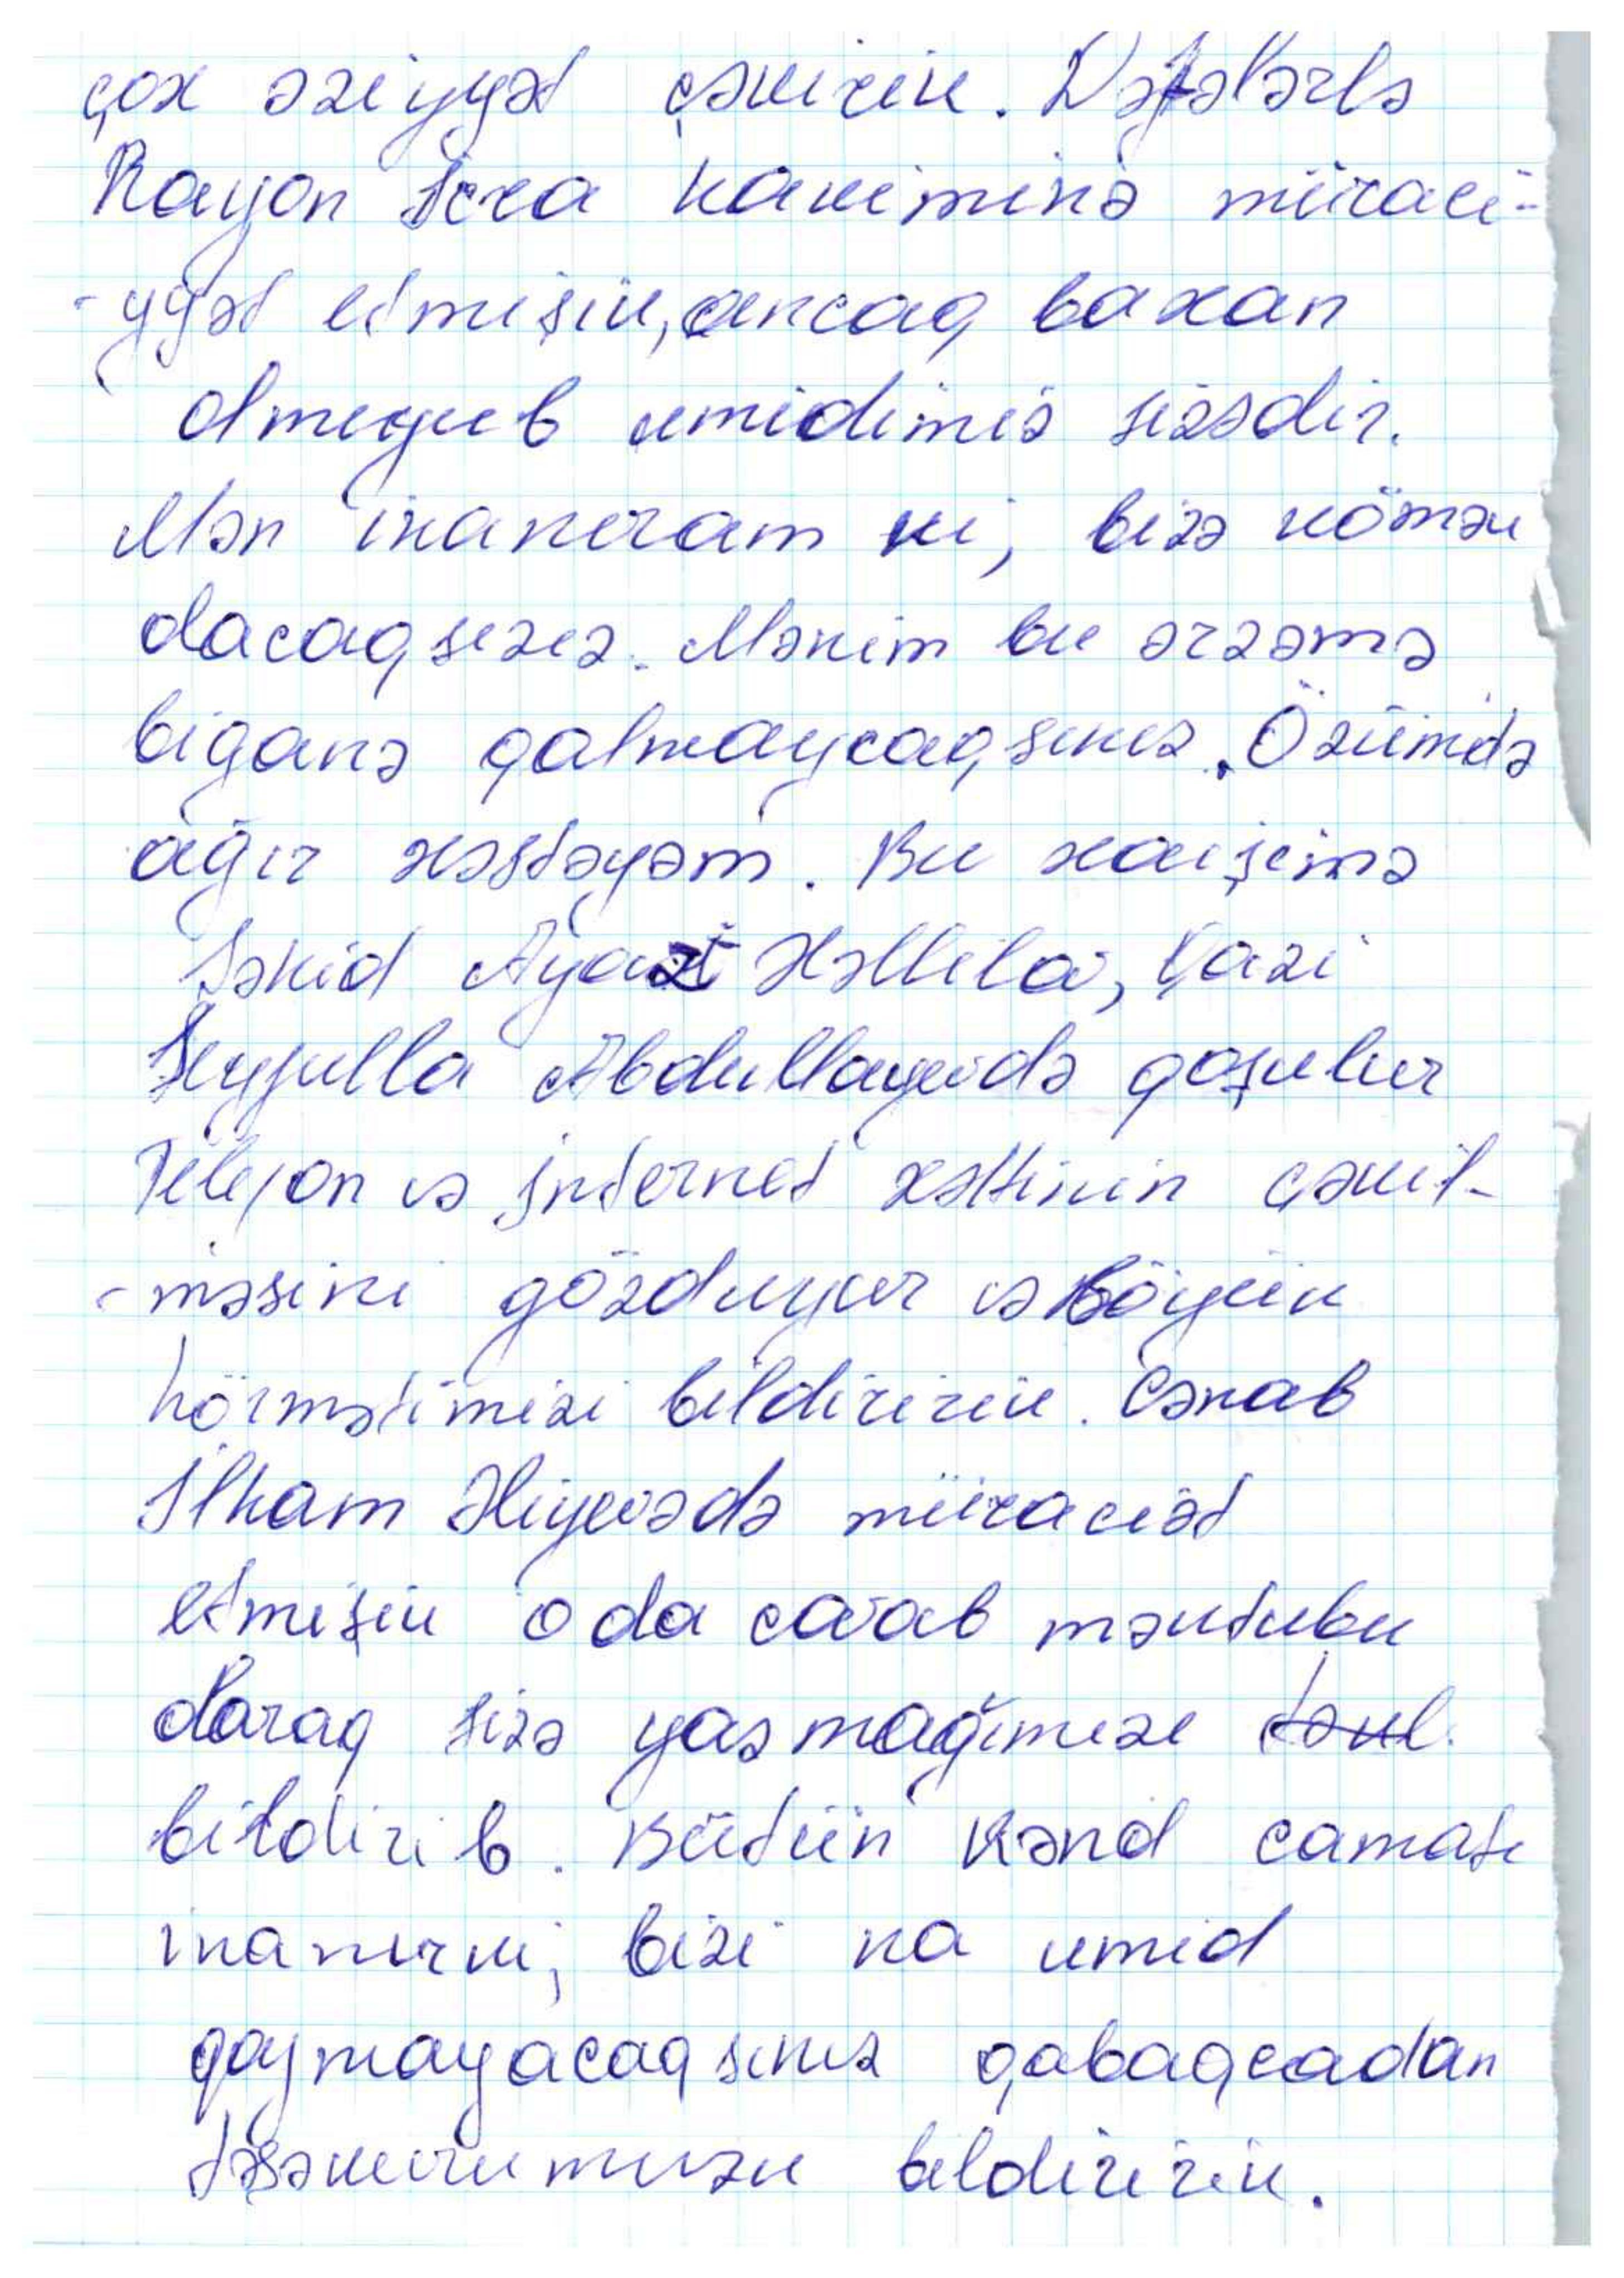 çox əziyyət çəkirik. Dəfələrlə
Rayon İcra hakiminə müraci-
-yyət etmişik, ancaq baxan
olmuyub umidimiz sizədir.
Mən inanıram ki, bizə kömək
olacaqsızız. Mənim bu ərzəmə
biganə qalmaycaqsınız. Özümdə
ağır xəstəyəm. Bu xaişimə
Şəhid Ayaz Xəllilov, Qazi
Seyfulla Abdullayevdə qoşulur
Telefon və İnternet xəttinin çəkil-
-məsini gözduyur və Böyük
hörmətimizi bildiririk. Cənab
İlham Əliyevədə müraciət
etmişik oda cavab məktubu
olaraq sizə yazmağımızı
bildirib. Bütün kənd camatı
inanırki, bizi na umid
qoymayacaqsınız qabaqcadan
təşəkürumuzu bildiririk.